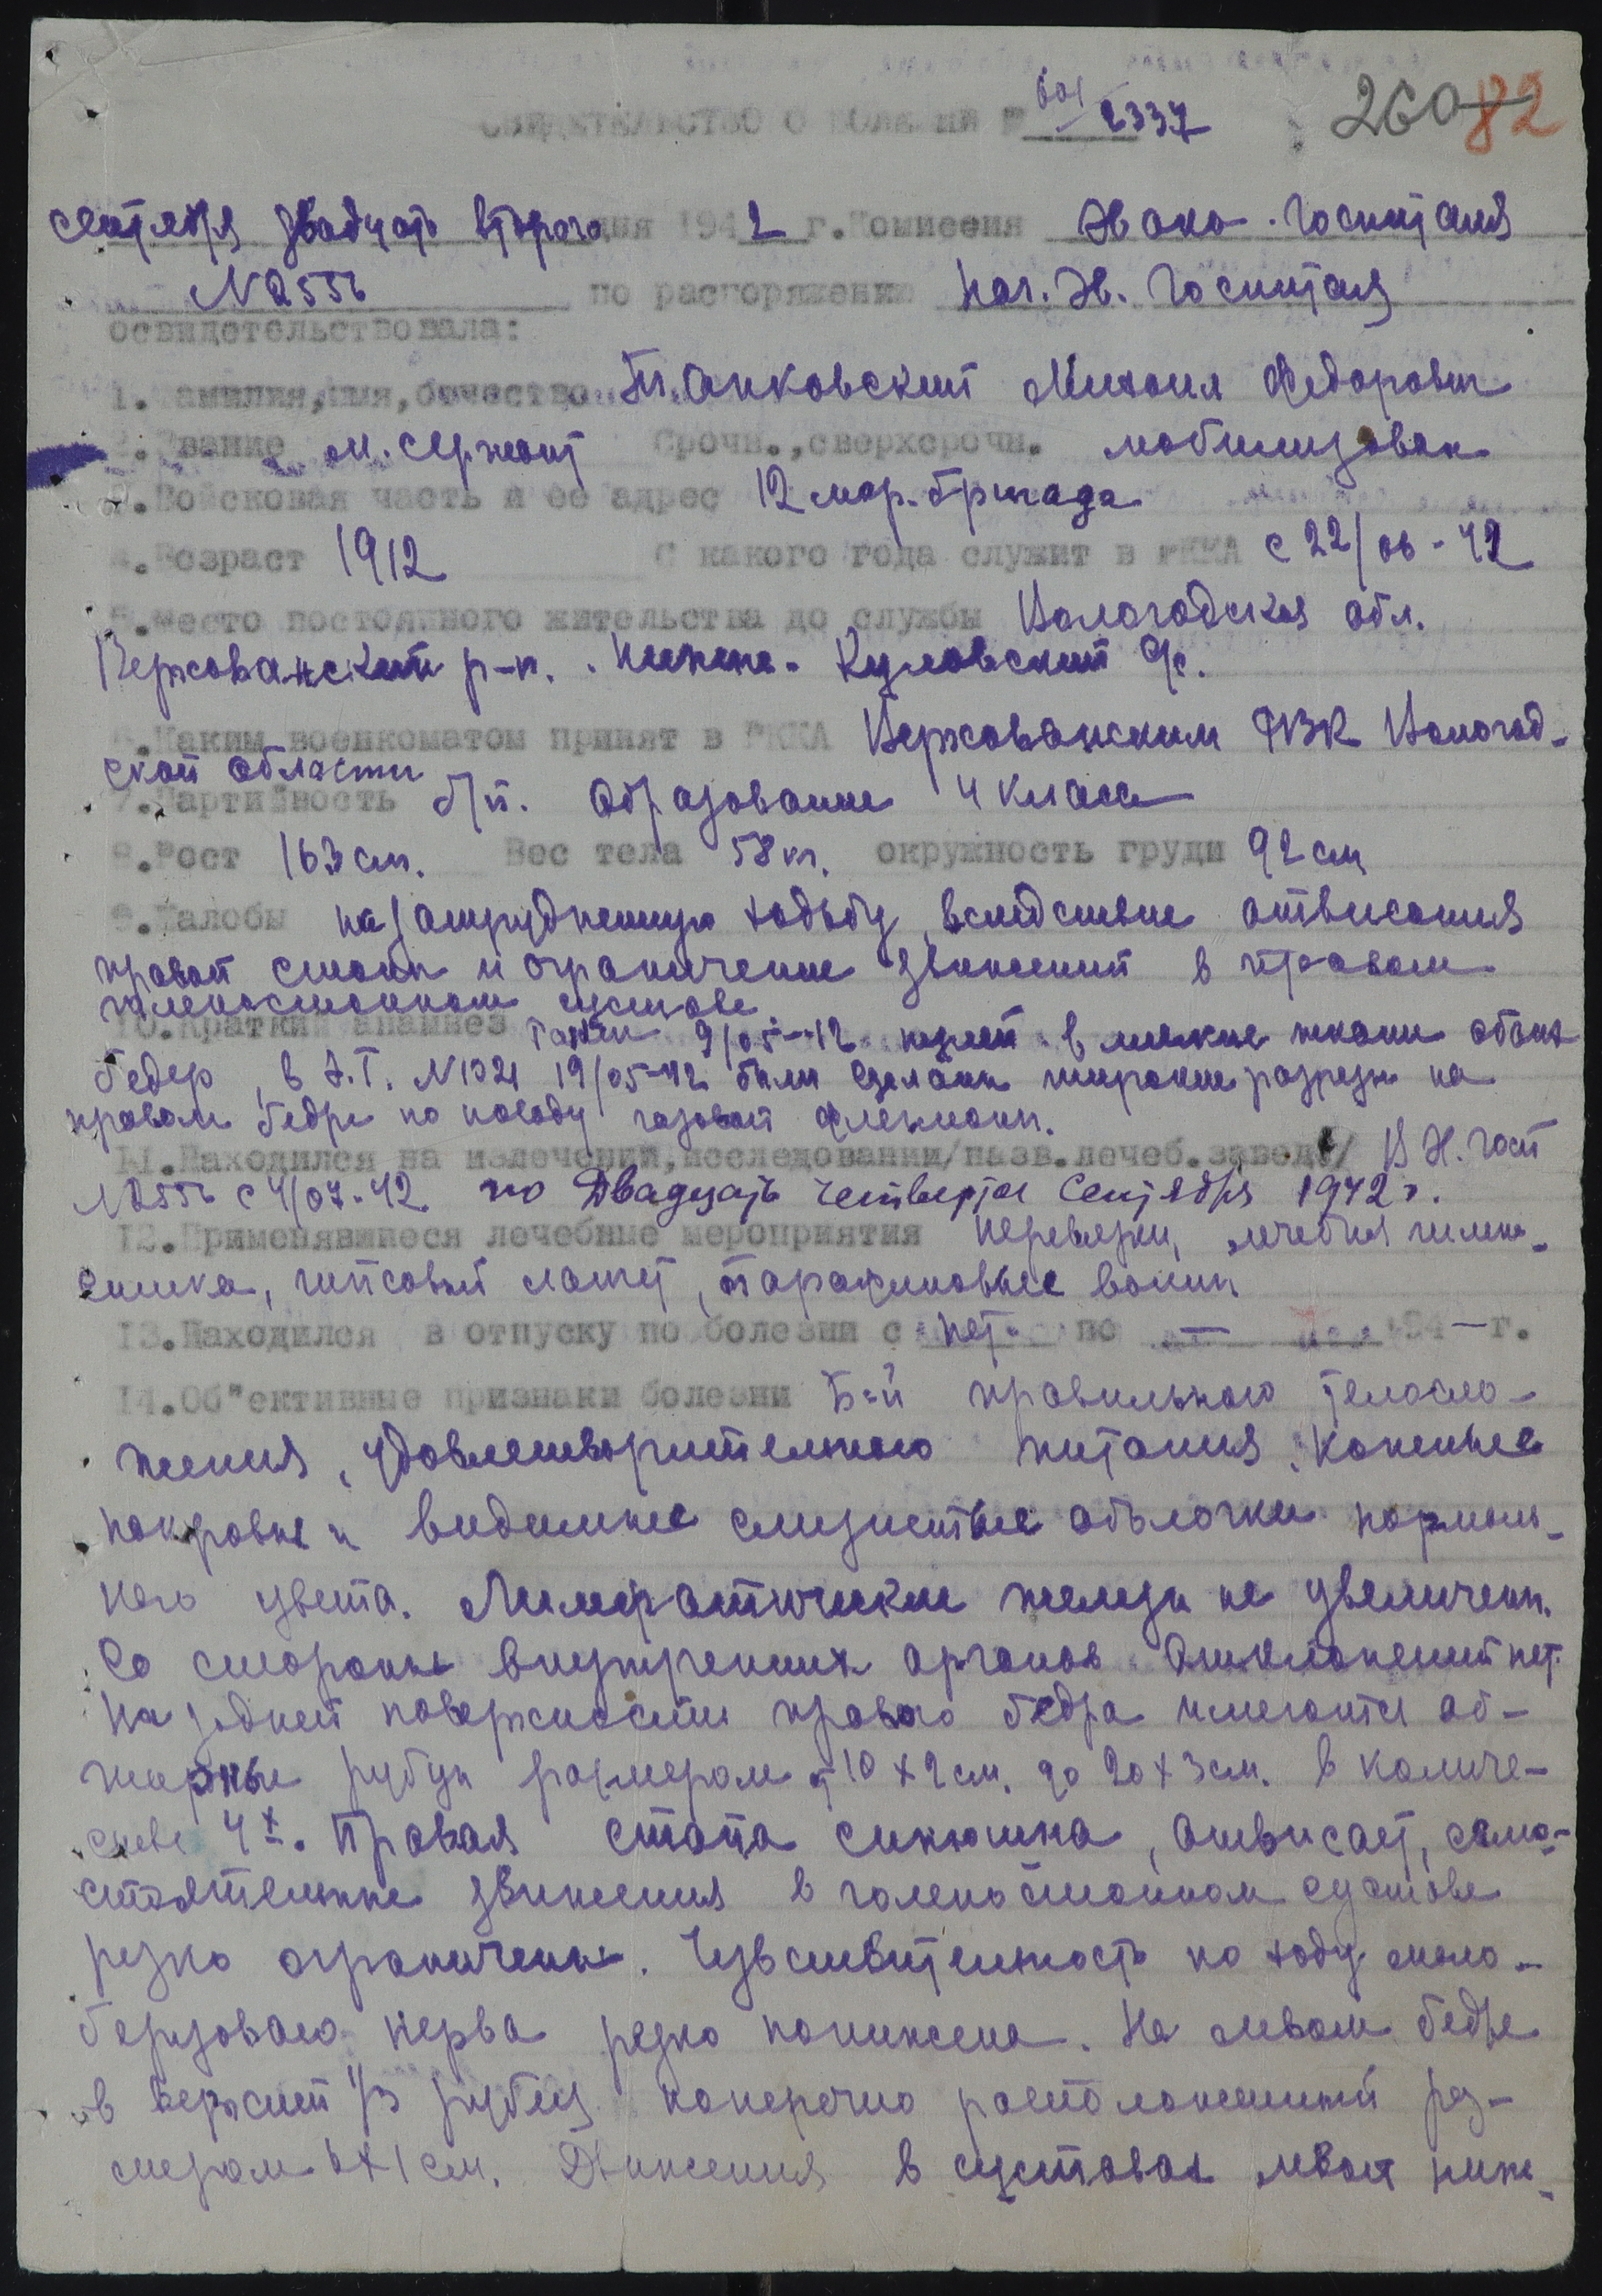 601
26082
СВИДЕТЕЛЬСТВО О БОЛЕЗНИ № 2337
сентября двадцать второго дня 1942 г. Комиссия Эвако. госпиталя
N 2556 по распоряжению Нач. Эв. Госпиталя
освидетельствовала:
1. Фамилия, имя, отчество Панковский Михаил Федорович
2. Звание мл. сержант Срочн., сверхсрочн. мобилизован
3. Войсковая часть и ее адрес 12 мор. бригада
4. Возраст 1912 С какого года служит в РККА с 22/06-42
5. Место постоянного жительства до службы Вологодская обл.
р-н. Нижне-Кулойский с/с.
6. Каким военкоматом принят в РККА РВК Вологод-
ской области
7. Партийность б/п. Образование 4 класса
8. Рост 163 см. Вес тела 58 кг. окружность груди 92 см
9. Жалобы на затрудненную ходьбу, вследствие отвисания
правой стопы и ограничение движений в правом
голеностопном суставе
10. Краткий анамнез Ранен 9/05-42 пулей в мягкие ткани обоих
бедер, в Э.Г. N 1021 19/05-42 были сделаны широкие разрезы на
правом бедре по поводу газовой флегмоны.
11. Находился на излечении, исследовании/назв. лечеб. завед./ В Э. госп
N 2556 с 4/07-42 по Двадцать четвертое Сентября 1942 г.
12. Применявшиеся лечебные мероприятия перевязки, лечебная гимна-
стика, гипсовый лангет, парафиновые ванны
13. Находился в отпуску по болезни с нет по — 194—г.
14. Об"ективные признаки болезни Б-й правильного телосло-
жения, удовлетворительного питания. Кожные
покровы и видимые слизистые оболочки нормаль-
ного цвета. Лимфатические железы не увеличены.
Со стороны внутренних органов отклонений нет.
На задней поверхности правого бедра имеются об-
ширные рубцы размером от 10 х 2 см. до 20 х 3 см. в количе-
стве 4х. Правая стопа синюшна, отвисает, само-
стоятельные движения в голеностопном суставе
резко ограничены. Чувствительность по ходу мало-
берцового нерва резко понижена. На левом бедре
в верхней 1/3 рубец поперечно расположенный раз-
мером 6х1 см. Движения в суставах левой ниж-